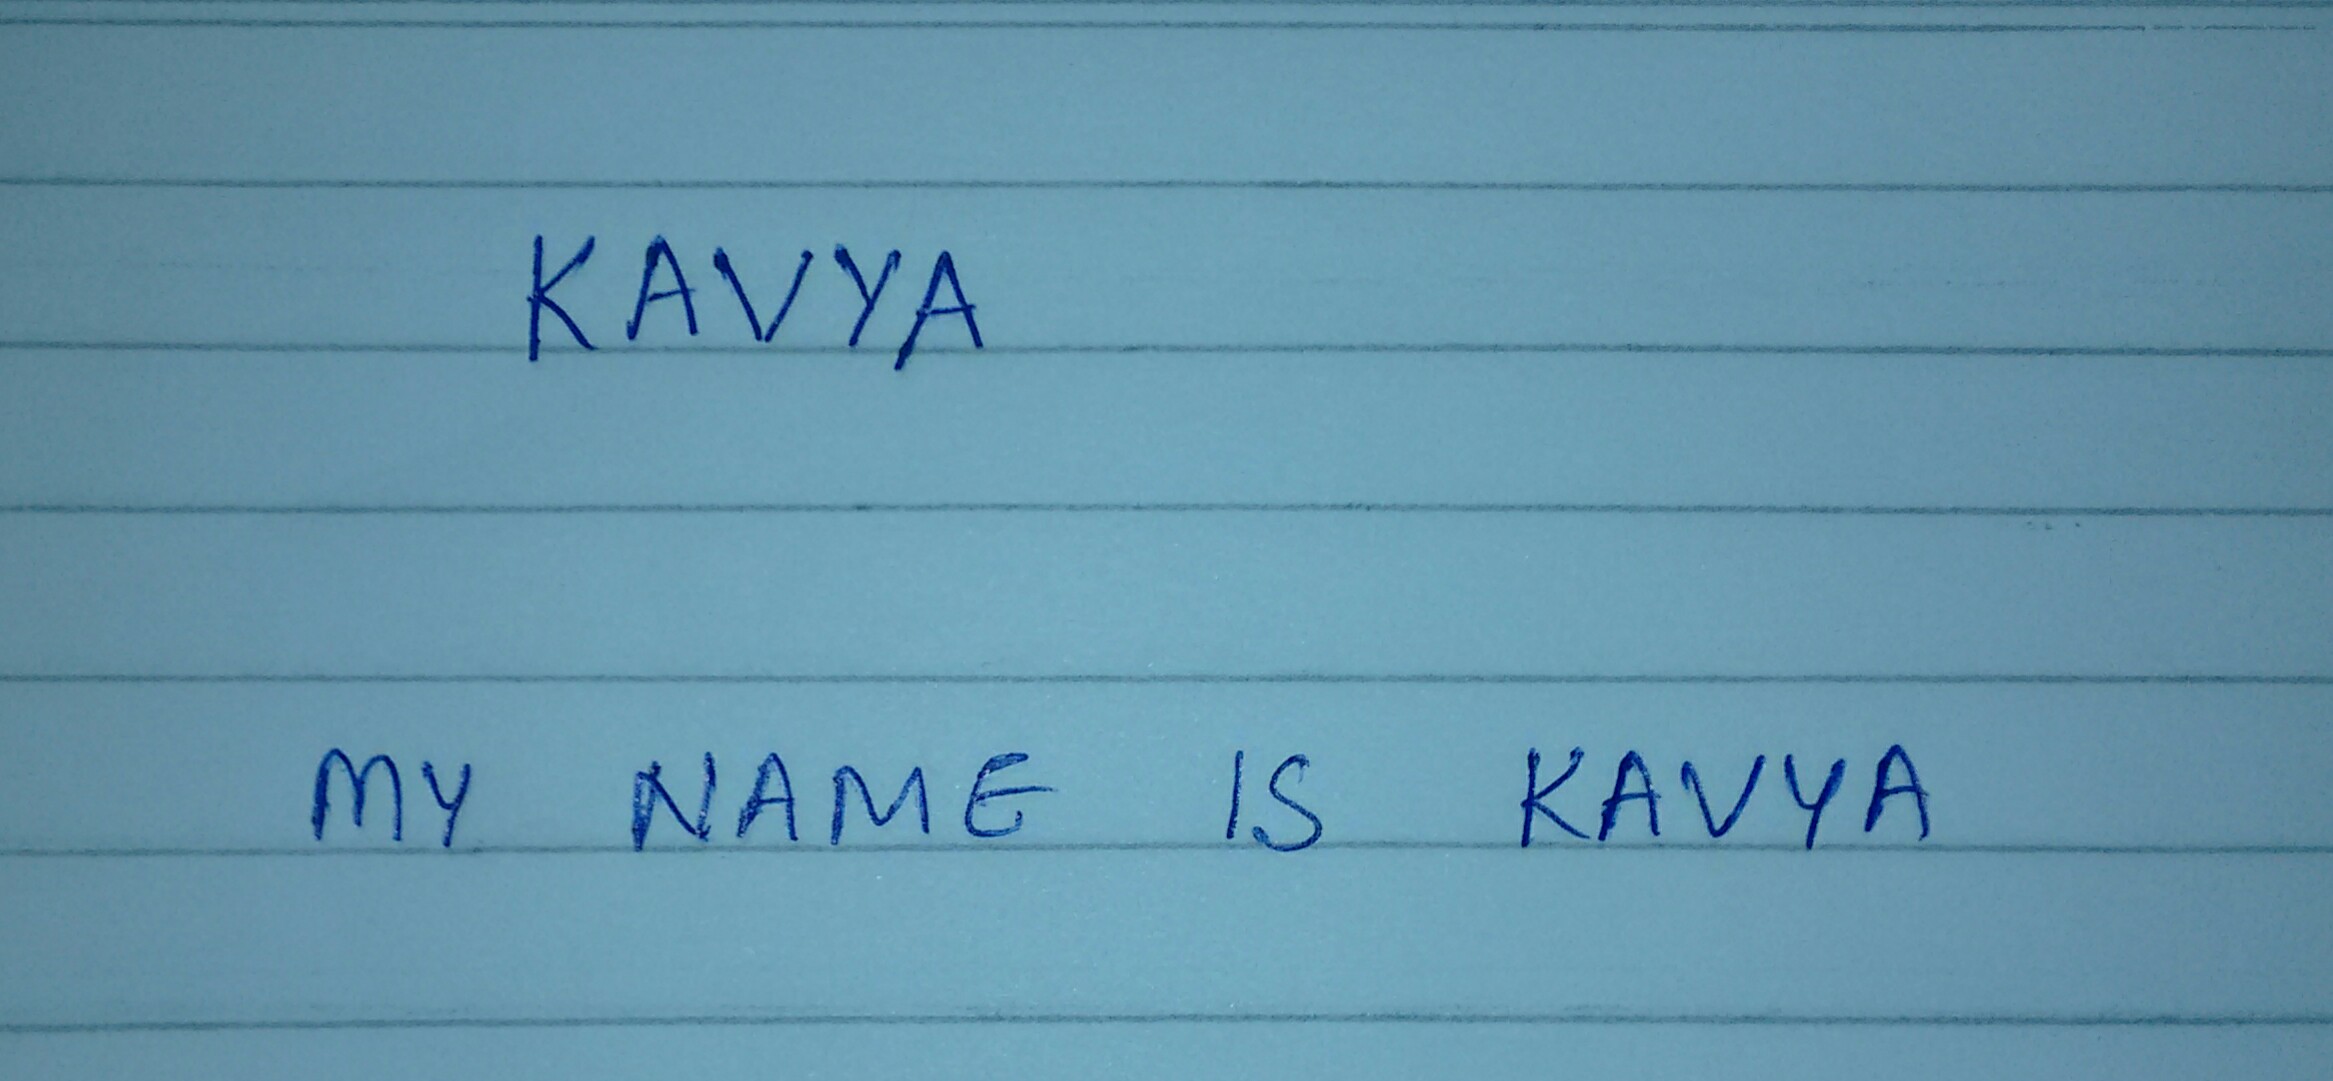 KAVYA
MY NAME IS KAVYA